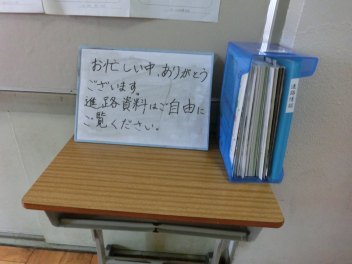 お忙しい中、ありがとう
ございます。
進路資料はご自由に
ご覧ください。